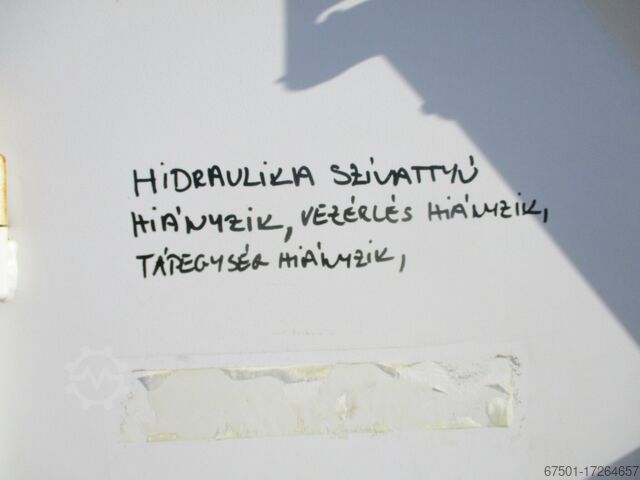 HIDRAULIKA SZIVATTYÚ
HIÁNYZIK, VEZÉRLÉS HIÁNYZIK,
TÁPEGYSÉG HIÁNYZIK,
67501-17264657